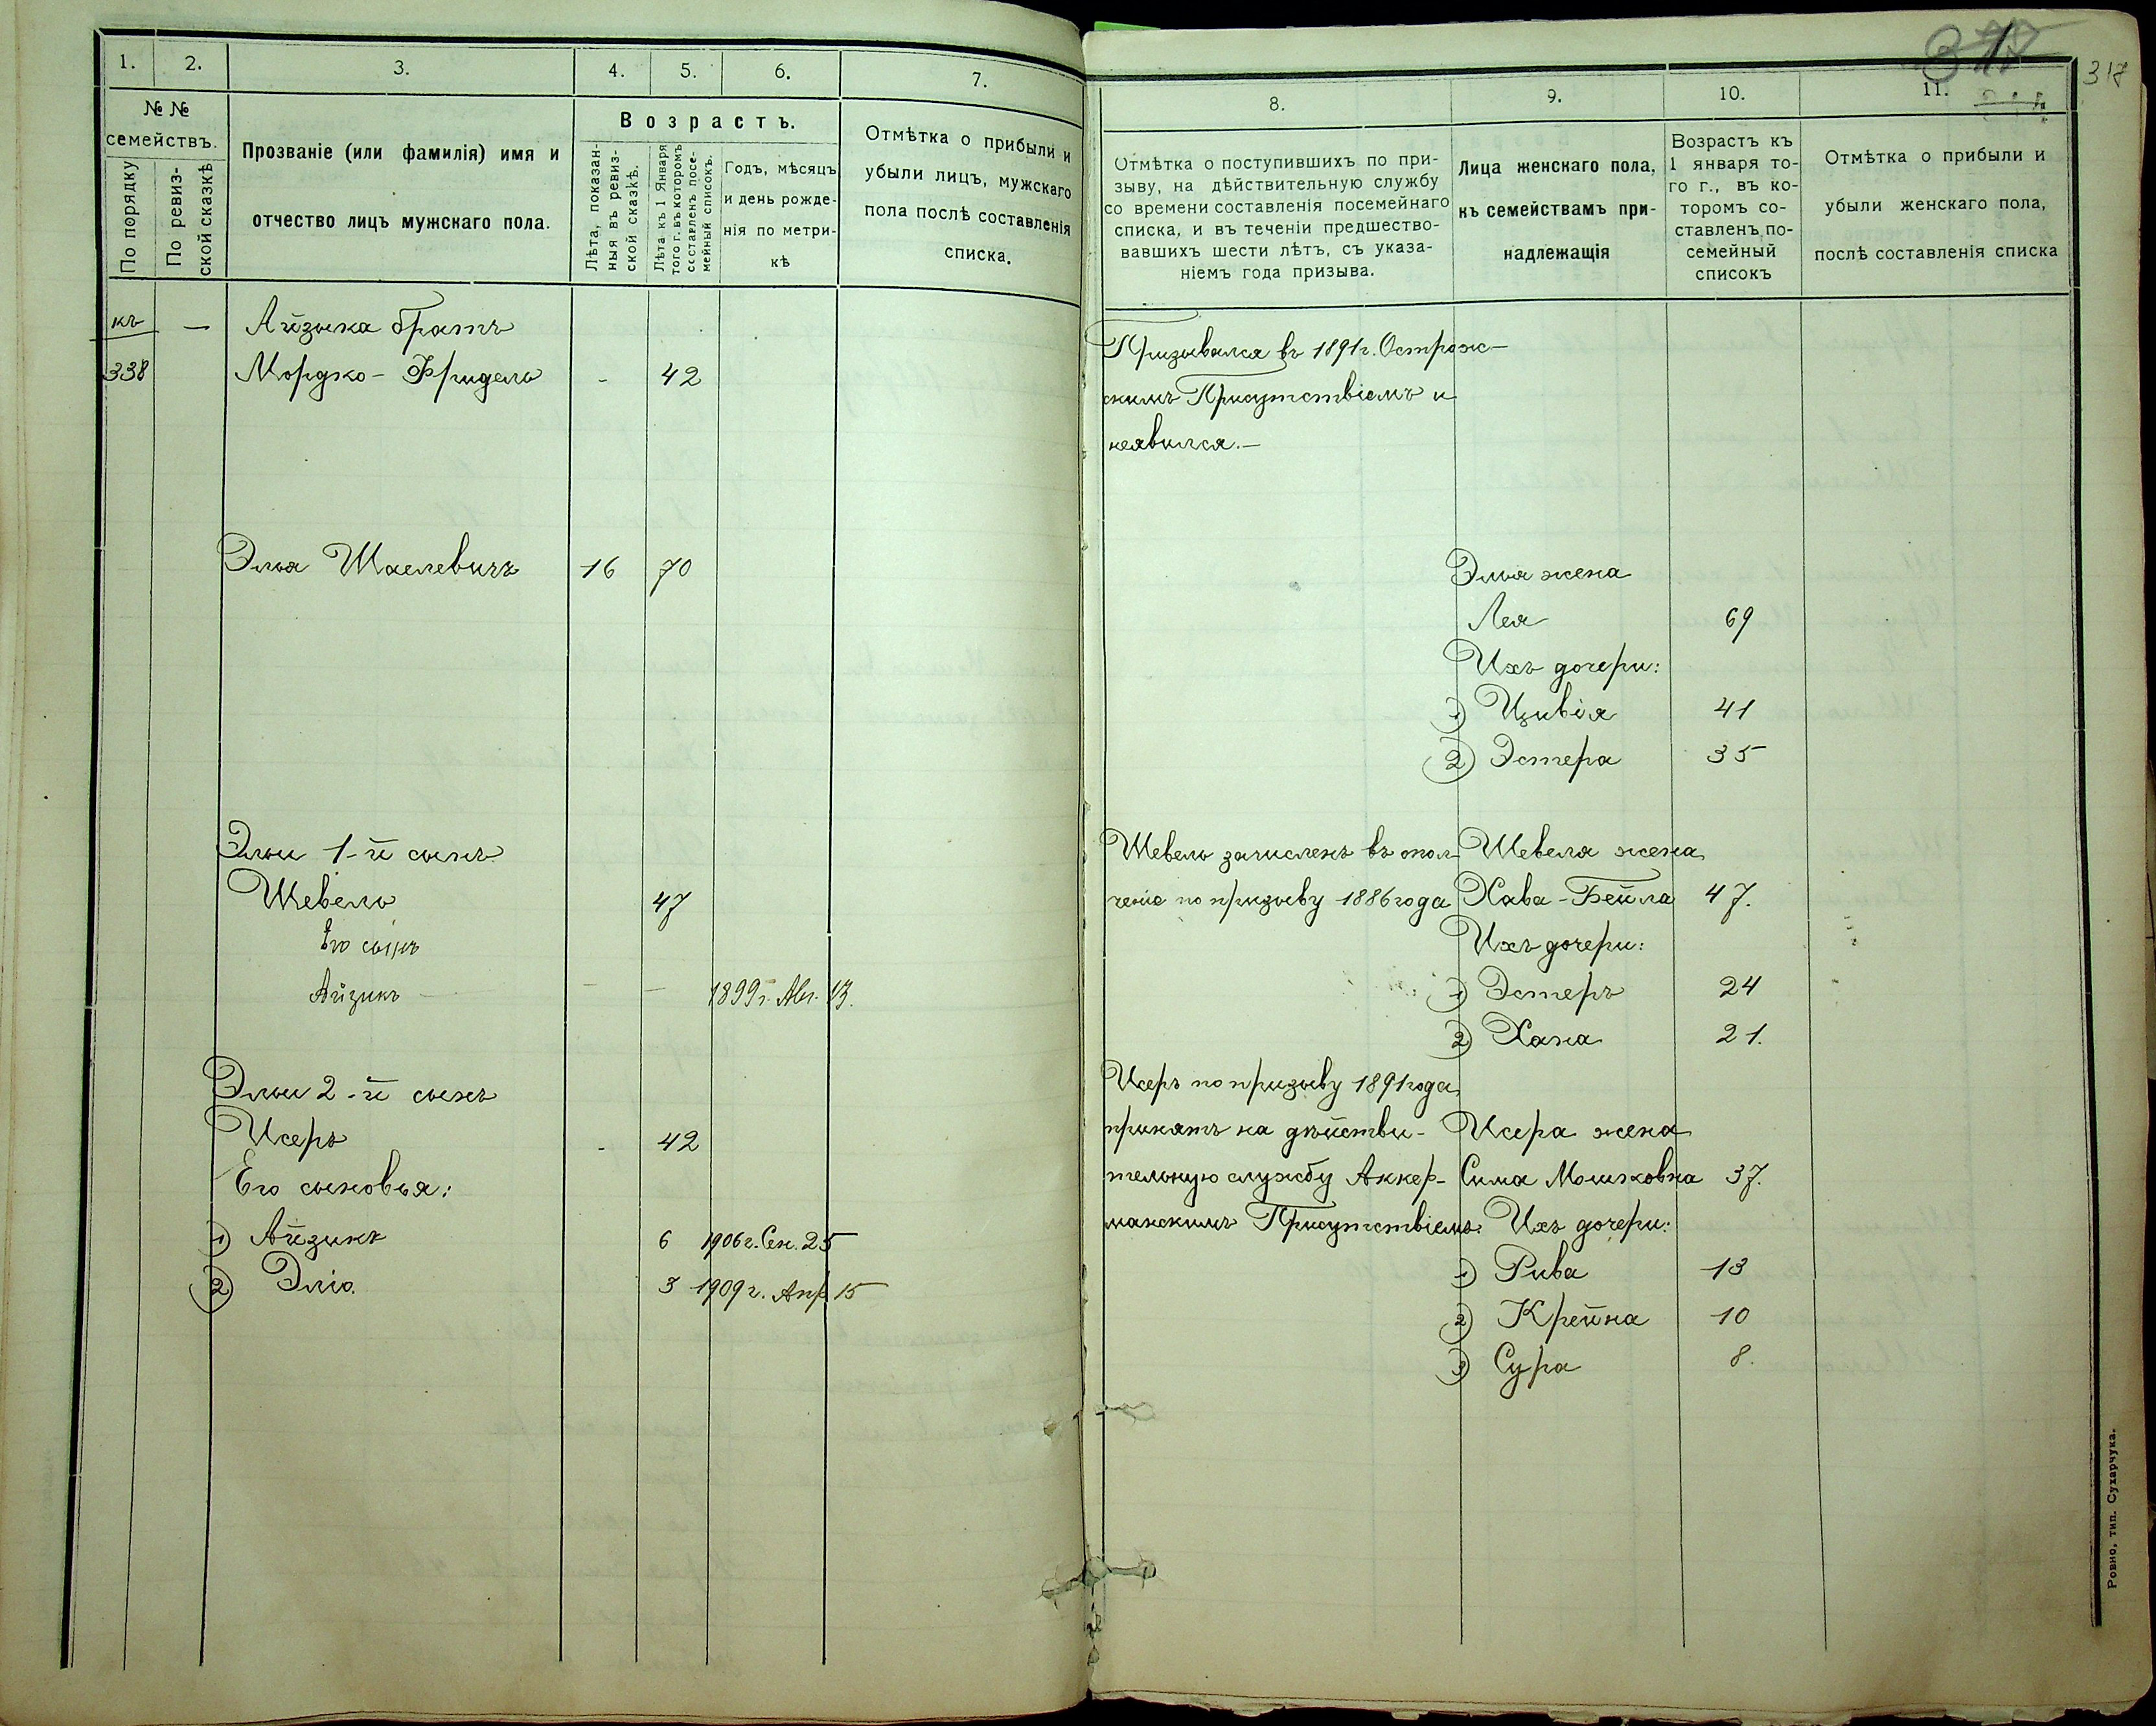 1.
2.
3.
4.
5.
6.
7.
№ №
семействъ.
По порядку
По ревиз-
ской сказкѣ
Прозваніе (или фамилія) имя и
отчество лицъ мужскаго пола.
Возрастъ.
Лѣта, показан-
ныя въ ревиз-
ской сказкѣ.
Лѣта къ 1 Января
того г. въ которомъ
составленъ посе-
мейный списокъ.
Годъ, мѣсяцъ
и день рожде-
нія по метри-
кѣ
Отмѣтка о прибыли и
убыли лицъ, мужскаго
пола послѣ составленія
списка.
къ — Айзика братъ
338 Мордко-Фридель - 42
Эля Шаелевичъ 16 70
Эльи 1-й сынъ
Шевель 47
Его сынъ
Айзикъ — — 1899 г. Авг. 13.
Эльи 2-й сынъ
Исеръ - 42
Его сыновья:
1) Айзикъ 6 1906 г. Сен. 25
2) Эліо 3 1909 г. Апр 15
317
8.
9.
10.
11.
Отмѣтка о поступившихъ по при-
зыву, на дѣйствительную службу
со времени составленія посемейнаго
списка, и въ теченіи предшество-
вавшихъ шести лѣтъ, съ указа-
ніемъ года призыва.
Лица женскаго пола,
къ семействамъ при-
надлежащія
Возрастъ къ
1 января то-
го г., въ ко-
торомъ со-
ставленъ по-
семейный
списокъ
Отмѣтка о прибыли и
убыли женскаго пола,
послѣ составленія списка
Призывался въ 1891 г. Острож-
скимъ Присутствіемъ и
неявился.—
Эльи жена
Лея 69
Ихъ дочери:
1) Цивія 41
2) Эстера 35
Шевель зачисленъ въ опол-
ченіе по призыву 1886 года
Шевеля жена
Хава-Бейла 47.
Ихъ дочери:
1) Эстеръ 24
2) Хана 21.
Исеръ по призыву 1891 года
принятъ на дѣйстви-
тельную службу Аккер-
манскимъ Присутствіемъ.
Исера жена
Сима Мошковна 37.
Ихъ дочери:
1) Рива 13
2) Крейна 10
3) Сура 8.
Ровно, тип. Сухарчука.